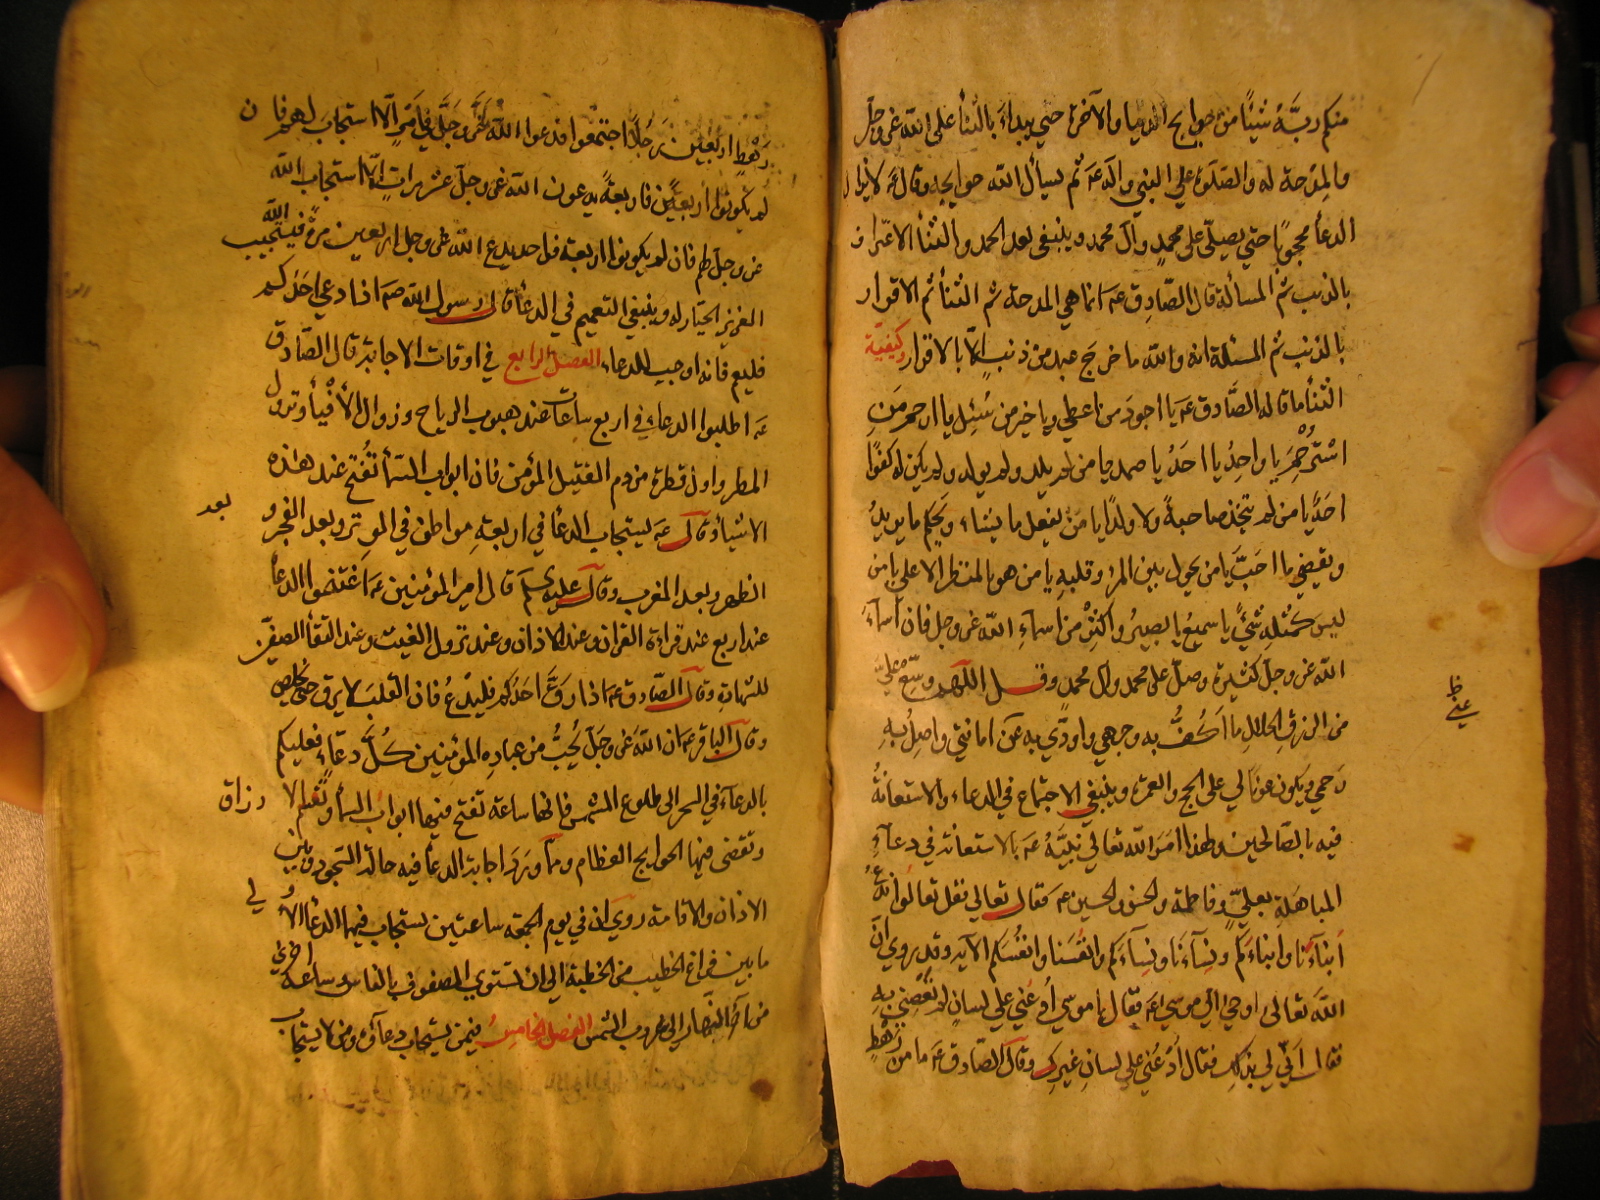 منكم ربَّهُ شيئًا من حوايج الدنيا والآخرة حتى يبدأ بالثناء على الله عز وجل
والمِدحة له والصّلوة على النبي وآله عم ثم يسأل الله حوايجه وقال عم لا يزال
الدعأ محجوبًا حتى يصلّى على محمدٍ وآل محمد وينبغي بعد الحمد والثنأ الاعتراف
بالذنب ثم المسألة قال الصّادق عم انما هي المدحة ثم الثنأ ثم الاقرار
بالذنب ثم المسئلة انه والله ما خرج عبد من ذنبٍ الّا بالاقرار وكيفيّة
الثنأ ما قاله الصّادق عم يا اجود من اعطى ويا خير من سُئِل يا ارحم مَنِ
اسْتُرْحِمَ يا واحِدُ يا احَدُ يا صمد يا من لم يلد ولم يولد ولم يكن له كفوًا
احدٌ يا من لم يتّخذ صاحبةً ولا ولدًا يا مَنْ يفعل ما يشاء ويحكم ما يريدُ
ويقضي ما احَبَّ يا من يحول بين المرء وقلبهِ يا من هو بالمنظر الاعلى يا من
ليس كمثلِهِ شَيْءٌ يا سميعُ يا بصيرُ واكثِرْ من اسماءِ الله عز وجل فان اسمآءَ
الله عز وجل كثيرة وصلّ على محمد وآل محمدٍ وقل اللّهم وسّع عليَّ
من الرزق الحلال ما اكُفُّ به وجهي واودّي به عن امانتي واصِلُ بهِ
رَحمي ويكون عونًا لي على الحج والعمرة وينبغي الاجتماع في الدعاء والاستعانةُ
فيه بالصّالحين ولهذا امَرَ الله تعالى نبيَّهُ عم بالاستعانة في دعاءِ
المباهَلة بعليٍّ وفاطمة والحسن والحسين عم فقال تعالى فقل تعالَوا ندْعُ
ابنآءَنا وابناءَكم ونسآءَنا ونسآءَكم وانفُسَنا وانفُسَكم الآية وقد روي انّ
اللهَ تعالى اوحى الى موسى عم فقال يا موسى ادْعُني على لسانٍ لم تعصني بِهِ
فقال انّى لي بذلك فقال ادْعُني على لسانِ غيرك وقال الصّادق عم ما من رَهْطٍ
ظ
عنّي
رَهْطٍ اربعين رَجُلًا اجتمعوا فدعوا الله عَزَّ وجَلَّ في امرٍ الّا استجابَ لهم فان
لم يكونوا اربعين فاربعةٌ يدعون الله عز وجل عشر مراتٍ الّا استجاب الله
عز وجل لهم فان لم يكونوا اربعة فواحد يدعو الله عز وجل اربعين مرّة فيستجيب الله
العزيز الجبّار له وينبغي التعميم في الدعأ قال رسول الله صم اذا دعى احَدُكم
فليعم فانه اوجب للدعاء الفصل الرابع في اوقات الاجابة قال الصّادق
عم اطلبوا الدعاء في اربع ساعات عند هبوب الرياح وزوال الأفْيأ ونزول
المطر واول قطرة من دم القتيل المؤمن فان ابواب السّمأ تُفتح عند هذه
الاشياء وقال عم يستجاب الدعأ في اربعةِ مواطن في الوتر وبعد الفجر و
بعد
الظهر وبعد المغرب وقال علي عليه السلم قال امير المؤمنين عم اغتنموا الدعأ
عند اربع عند قراءة القران وعند الاذان وعند نزول الغيث وعند التقأ الصفّين
للشهادة وقال الصّادق عم اذا رقّ احَدُكم فليَدْعُ فان القلبَ لا يرق حتى يخلص
وقال الباقر عم ان اللهَ عز وجَلّ يُحِبُّ من عبادِهِ المؤمنين كُلَّ دعّاءٍ فعليكم
بالدعآء في السحر الى طلوع الشمس فانها ساعة تفتح فيها ابواب السمأ وتُقسم الا
رزاق
وتقضى فيها الحوايج العظام وممّا ورَدَ اجابة الدعأ فيه حالة السجود وبين
الاذان والاقامة روي ان في يوم الجمعة ساعتين يستجاب فيها الدعأ الاُو
لى
ما بين فراغ الخطيب من الخطبة الى ان تستوي الصفوف بالناس وساعة اخرى
من آخر النّهار الى غروب الشمس الفصل الخامسُ فيمن يستجاب دعآؤه ومن لا يستجاب